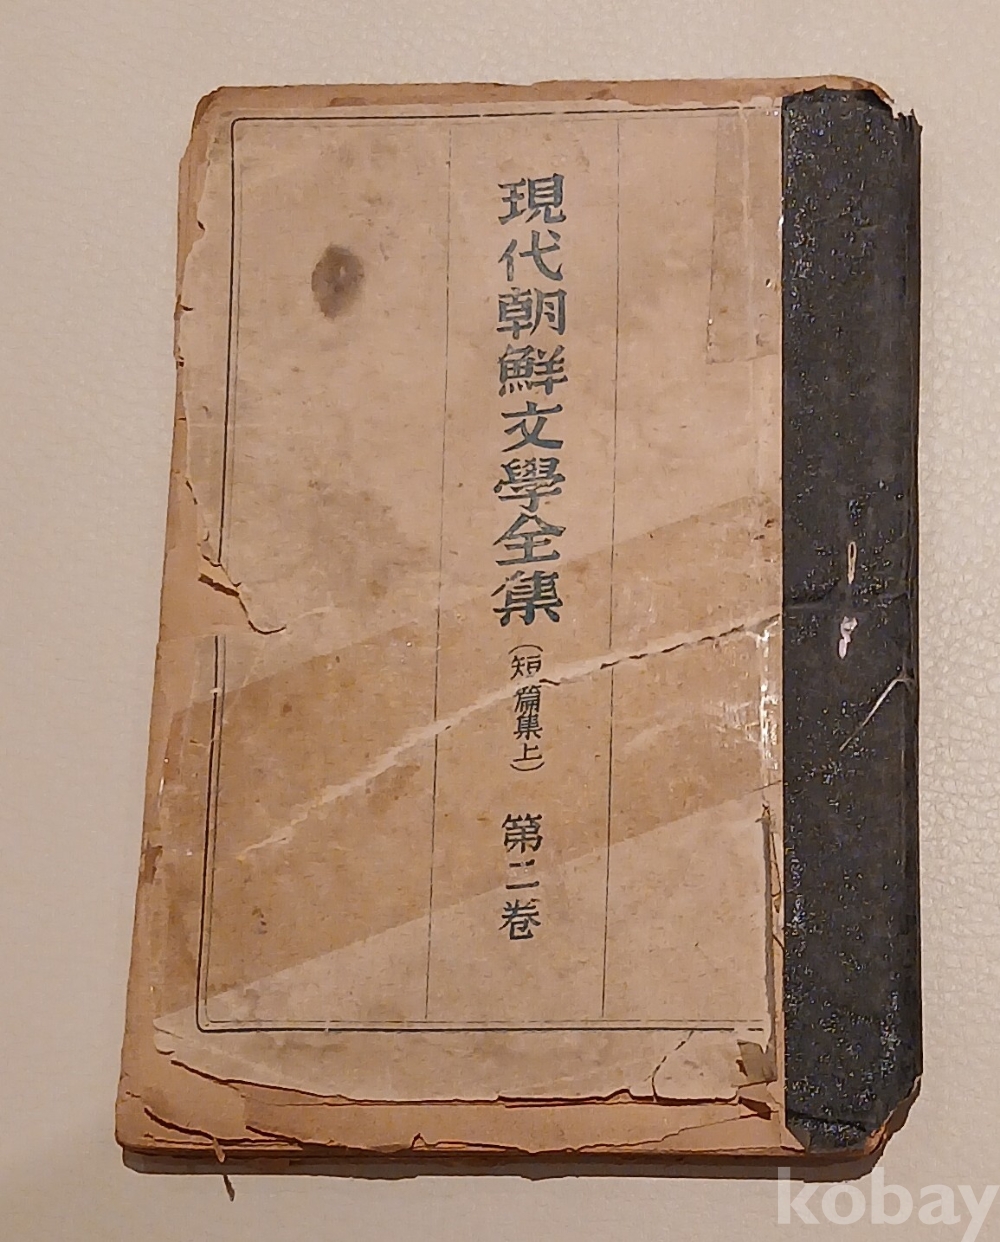 現代朝鮮文學全集(短篇集上) 第二卷
kobay